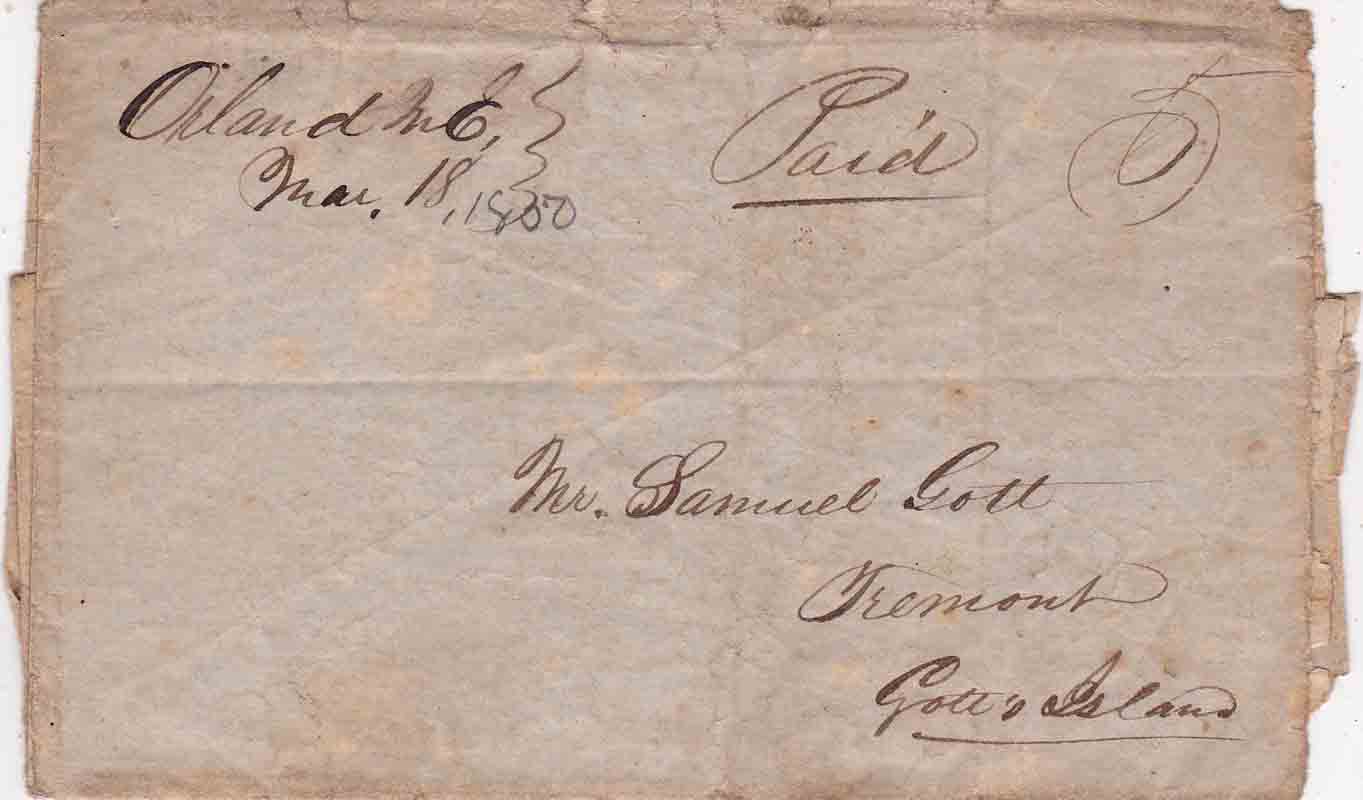 Orland M E, Paid 5
Mar. 18, 1850
Mr. Samuel Gott
Tremont
Gott's Island